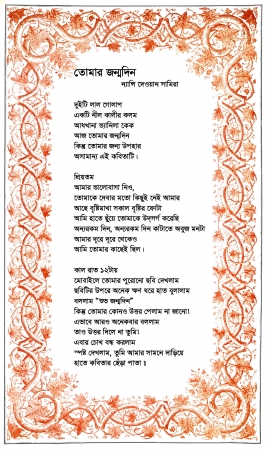 তোমার জন্মদিন
ন্যান্সি দেওয়ান সামিরা
দুইটি লাল গোলাপ
একটি নীল কালীর কলম
আধখানা ভ্যানিলা কেক
আজ তোমার জন্মদিন
কিন্তু তোমার জন্য উপহার
অসামান্য এই কবিতাটি।
প্রিয়তম
আমার ভালোবাসা নিও,
তোমাকে দেবার মতো কিছুই নেই আমার
আছে বৃষ্টিমাখা সকাল বৃষ্টির ফোটা
আমি হাতে ছুঁয়ে তোমাকে উৎসর্গ করেছি
অন্যরকম দিন, অন্যরকম দিন কাটাতে অবুজ মনটা
আমার দূরে দূরে থেকেও
আমি তোমার কাছেই ছিল।
কাল রাত ১২টায়
মোবাইলে তোমার পুরোনো ছবি দেখলাম
ছবিটির উপরে অনেক ক্ষণ ধরে হাত বুলালাম
বললাম "শুভ জন্মদিন"
কিন্তু তোমার কোনও উত্তর পেলাম না জানো!
এভাবে আরও অনেকবার বললাম
তাও উত্তর দিলে না তুমি!
এবার চোখ বন্ধ করলাম
স্পষ্ট দেখলাম, তুমি আমার সামনে দাড়িয়ে
হাতে কবিতার ছেঁড়া পাতা ॥